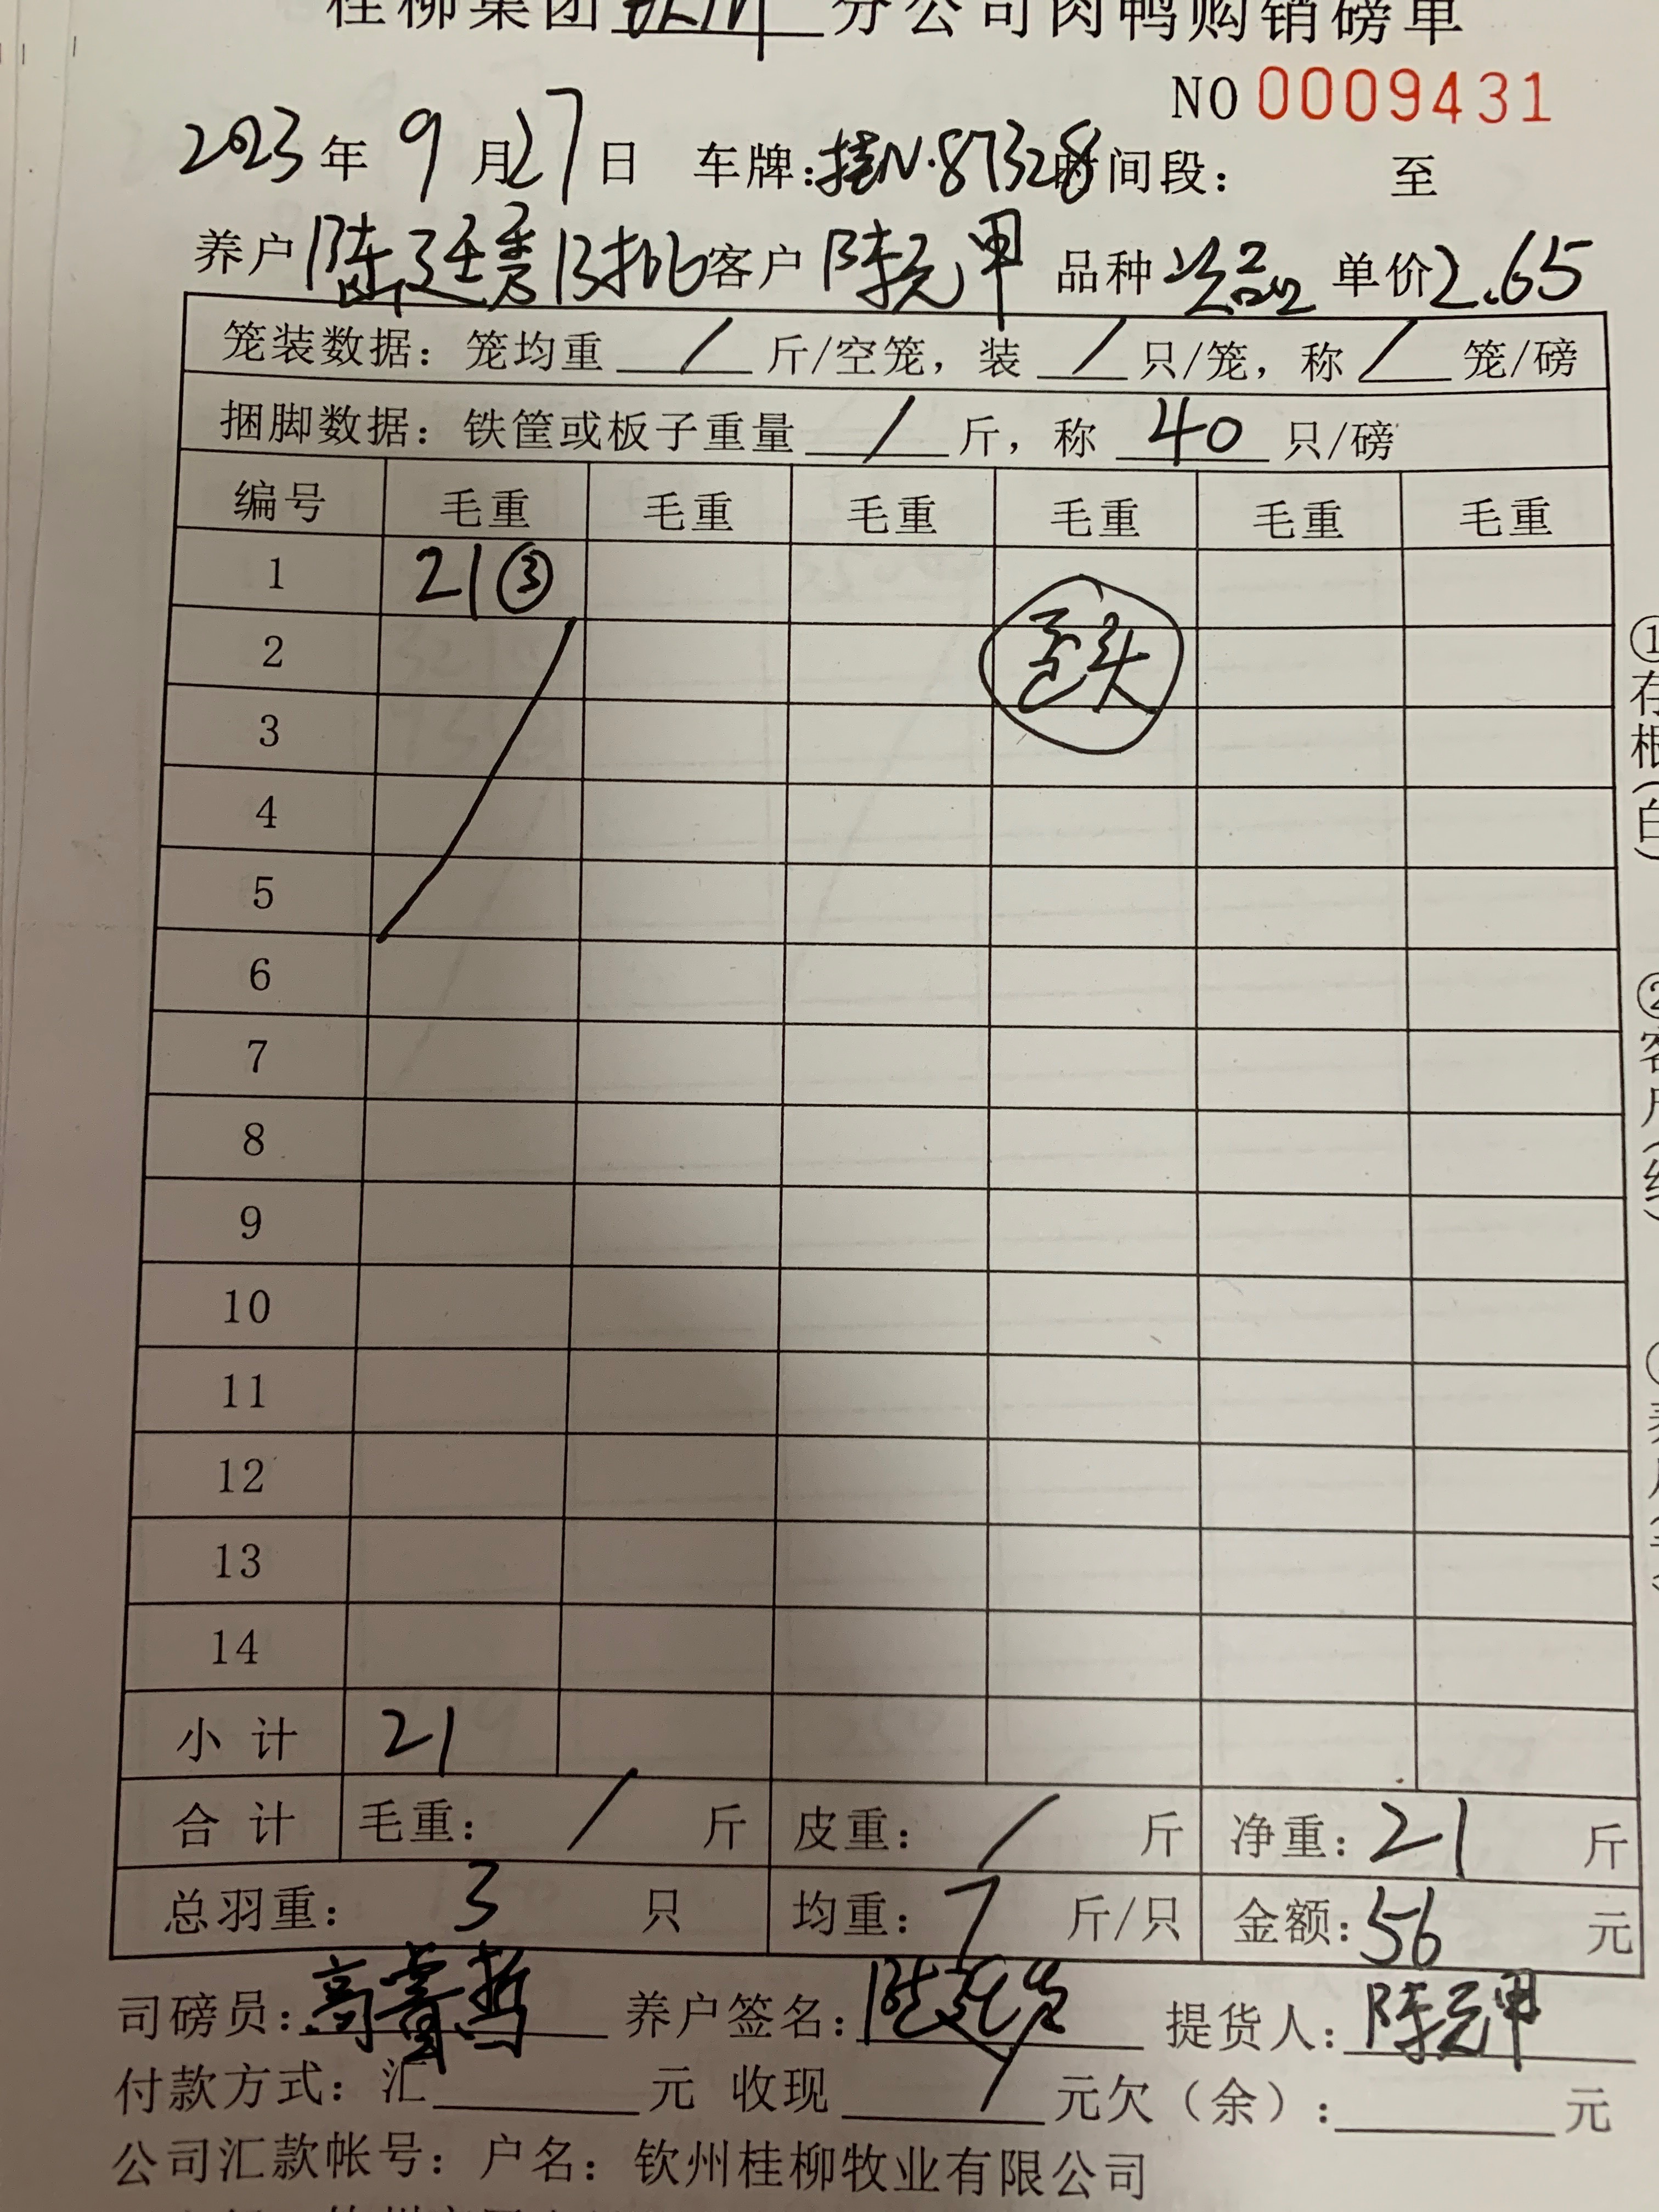 桂柳集团钦州分公司肉鸭购销磅单
NO 0009431
2023年9月27日 车牌:桂N·87328时间段: 至
养户陈廷秀13批客户陈元甲 品种次品 单价2.65
笼装数据: 笼均重 / 斤/空笼, 装 / 只/笼, 称 / 笼/磅
捆脚数据: 铁筐或板子重量 / 斤, 称 40 只/磅
编号 毛重 毛重 毛重 毛重 毛重 毛重
1 21③
2
3
4
5
6
7
8
9
10
11
12
13
14
小计 21
合计 毛重: / 斤 皮重: / 斤 净重: 21 斤
总羽重: 3 只 均重: 7 斤/只 金额: 56 元
司磅员: 养户签名: 提货人: 陈元甲
付款方式: 汇 元 收现 元欠(余): 元
公司汇款帐号: 户名: 钦州桂柳牧业有限公司
①存根(白)
②客户(红)